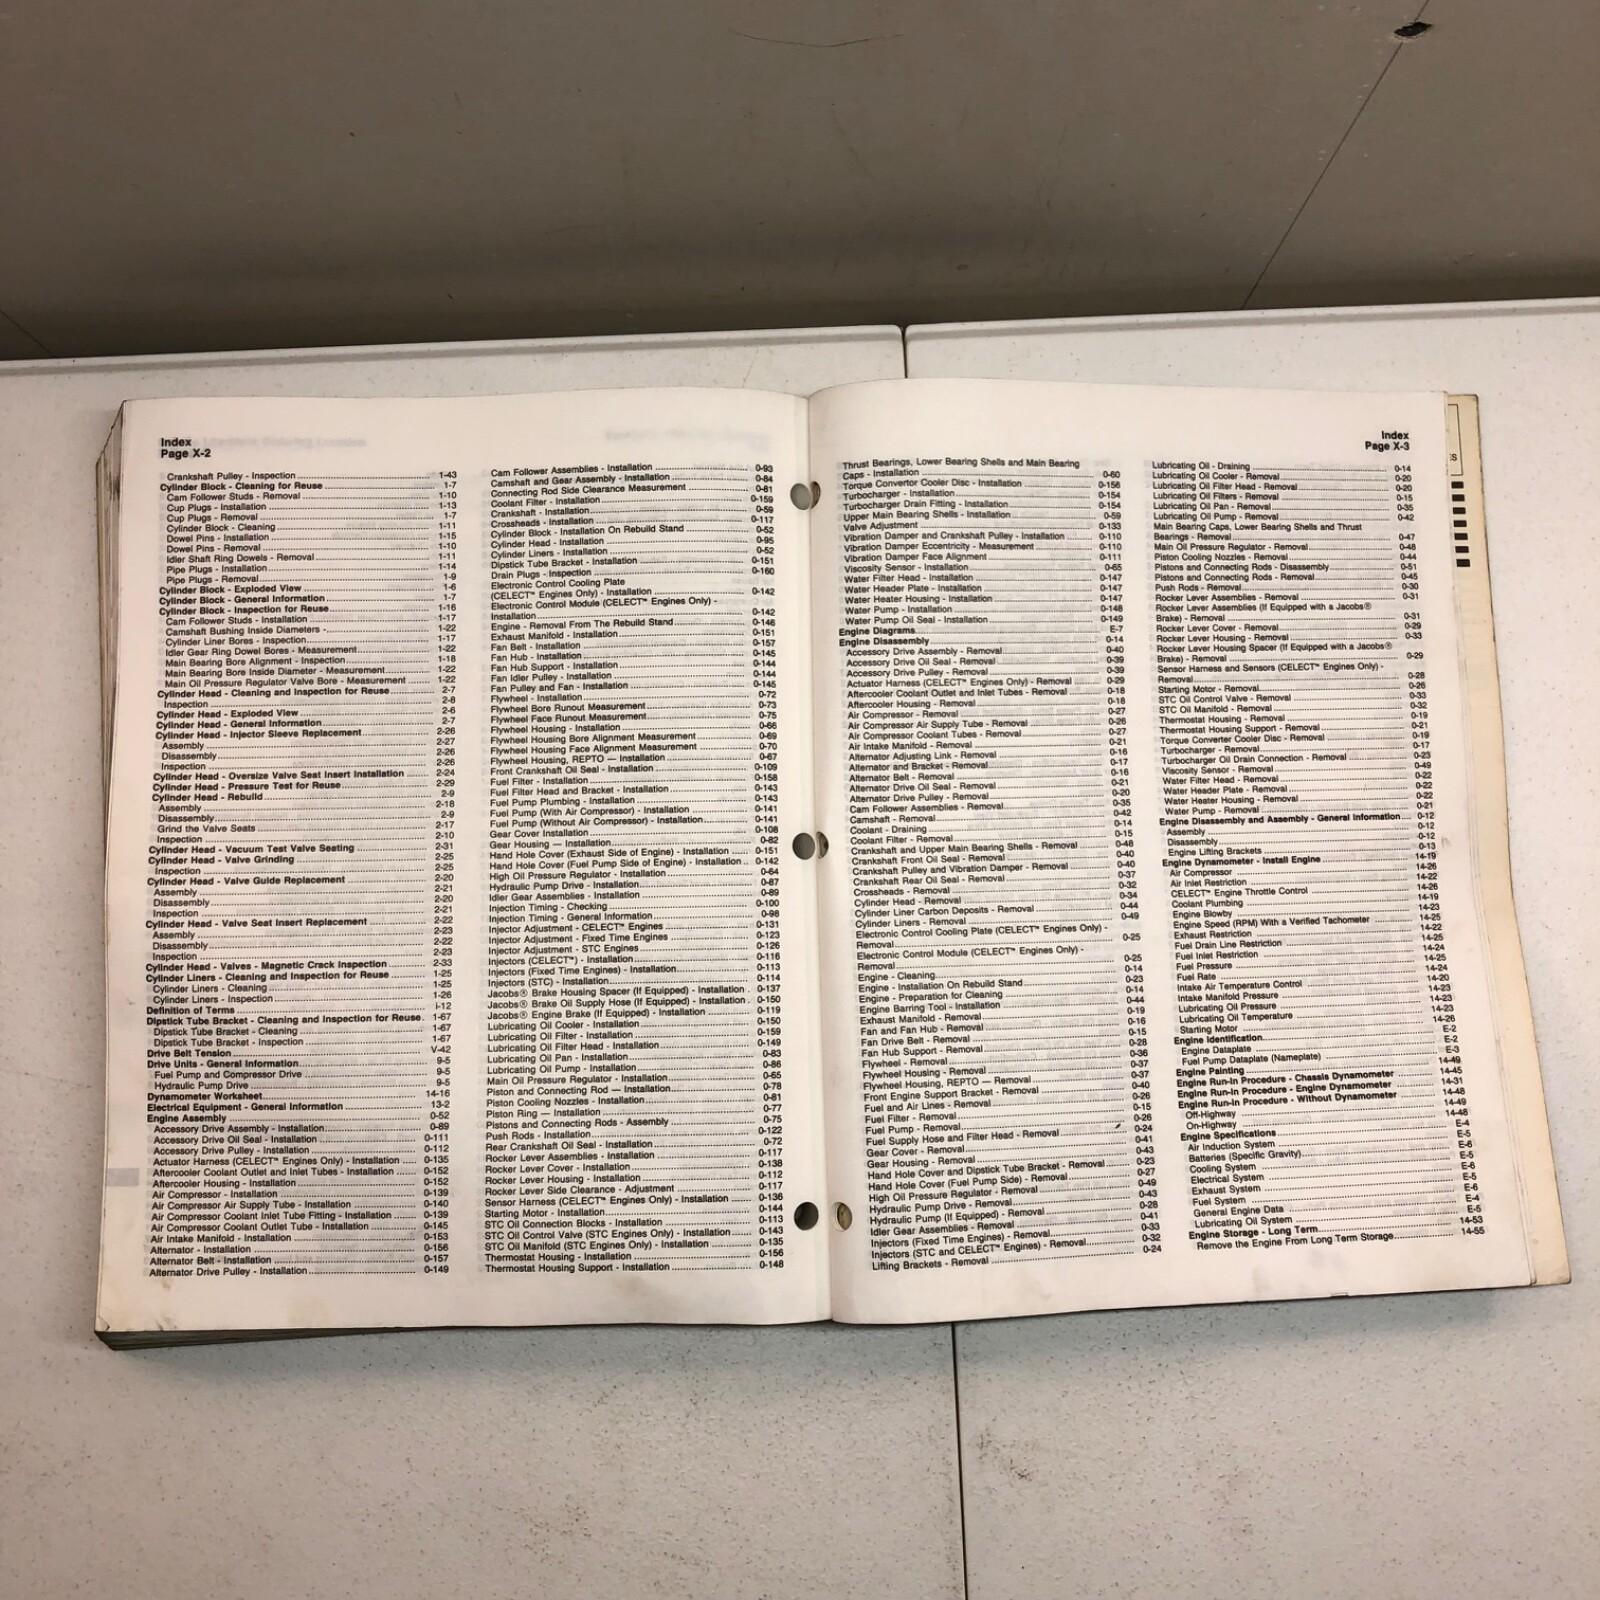 Index
Page X-2
Crankshaft Pulley - Inspection 1-43
Cylinder Block - Cleaning for Reuse 1-7
Cam Follower Studs - Removal 1-10
Cup Plugs - Installation 1-13
Cup Plugs - Removal 1-7
Cylinder Block - Cleaning 1-11
Dowel Pins - Installation 1-15
Dowel Pins - Removal 1-10
Idler Shaft Ring Dowels - Removal 1-11
Pipe Plugs - Installation 1-14
Pipe Plugs - Removal 1-9
Cylinder Block - Exploded View 1-6
Cylinder Block - General Information 1-7
Cylinder Block - Inspection for Reuse 1-16
Cam Follower Studs - Installation 1-17
Camshaft Bushing Inside Diameters - 1-22
Cylinder Liner Bores - Inspection 1-17
Idler Gear Ring Dowel Bores - Measurement 1-22
Main Bearing Bore Alignment - Inspection 1-18
Main Bearing Bore Inside Diameter - Measurement 1-22
Main Oil Pressure Regulator Valve Bore - Measurement 1-22
Cylinder Head - Cleaning and Inspection for Reuse 2-7
Inspection 2-8
Cylinder Head - Exploded View 2-6
Cylinder Head - General Information 2-7
Cylinder Head - Injector Sleeve Replacement 2-26
Assembly 2-27
Disassembly 2-26
Inspection 2-26
Cylinder Head - Oversize Valve Seat Insert Installation 2-24
Cylinder Head - Pressure Test for Reuse 2-29
Cylinder Head - Rebuild 2-9
Assembly 2-18
Disassembly 2-9
Grind the Valve Seats 2-17
Inspection 2-10
Cylinder Head - Vacuum Test Valve Seating 2-31
Cylinder Head - Valve Grinding 2-25
Inspection 2-25
Cylinder Head - Valve Guide Replacement 2-20
Assembly 2-21
Disassembly 2-20
Inspection 2-21
Cylinder Head - Valve Seat Insert Replacement 2-22
Assembly 2-23
Disassembly 2-22
Inspection 2-23
Cylinder Head - Valves - Magnetic Crack Inspection 2-33
Cylinder Liners - Cleaning and Inspection for Reuse 1-25
Cylinder Liners - Cleaning 1-25
Cylinder Liners - Inspection 1-26
Definition of Terms
Dipstick Tube Bracket - Cleaning and Inspection for Reuse 1-67
Dipstick Tube Bracket - Cleaning 1-67
Dipstick Tube Bracket - Inspection 1-67
Drive Belt Tension V-42
Drive Units - General Information 9-5
Fuel Pump and Compressor Drive 9-5
Hydraulic Pump Drive 9-5
Dynamometer Worksheet 14-16
Electrical Equipment - General Information 13-2
Engine Assembly 0-52
Accessory Drive Assembly - Installation 0-89
Accessory Drive Oil Seal - Installation 0-111
Accessory Drive Pulley - Installation 0-112
Actuator Harness (CELECT™ Engines Only) - Installation 0-135
Aftercooler Coolant Outlet and Inlet Tubes - Installation 0-152
Aftercooler Housing - Installation 0-152
Air Compressor - Installation 0-139
Air Compressor Air Supply Tube - Installation 0-140
Air Compressor Coolant Inlet Tube Fitting - Installation 0-139
Air Compressor Coolant Outlet Tube - Installation 0-145
Air Intake Manifold - Installation 0-153
Alternator - Installation 0-156
Alternator Belt - Installation 0-157
Alternator Drive Pulley - Installation 0-149
Cam Follower Assemblies - Installation 0-93
Camshaft and Gear Assembly - Installation 0-84
Connecting Rod Side Clearance Measurement 0-81
Coolant Filter - Installation 0-159
Crankshaft - Installation 0-59
Crossheads - Installation 0-117
Cylinder Block - Installation On Rebuild Stand 0-52
Cylinder Head - Installation 0-95
Cylinder Liners - Installation 0-52
Dipstick Tube Bracket - Installation 0-151
Drain Plugs - Inspection 0-160
Electronic Control Cooling Plate
(CELECT™ Engines Only) - Installation 0-142
Electronic Control Module (CELECT™ Engines Only) -
Installation 0-142
Engine - Removal From The Rebuild Stand 0-146
Exhaust Manifold - Installation 0-151
Fan Belt - Installation 0-157
Fan Hub - Installation 0-145
Fan Hub Support - Installation 0-144
Fan Idler Pulley - Installation 0-144
Fan Pulley and Fan - Installation 0-145
Flywheel - Installation 0-72
Flywheel Bore Runout Measurement 0-73
Flywheel Face Runout Measurement 0-75
Flywheel Housing - Installation 0-66
Flywheel Housing Bore Alignment Measurement 0-69
Flywheel Housing Face Alignment Measurement 0-70
Flywheel Housing, REPTO — Installation 0-67
Front Crankshaft Oil Seal - Installation 0-109
Fuel Filter - Installation 0-158
Fuel Filter Head and Bracket - Installation 0-143
Fuel Pump Plumbing - Installation 0-143
Fuel Pump (With Air Compressor) - Installation 0-141
Fuel Pump (Without Air Compressor) - Installation 0-141
Gear Cover Installation 0-108
Gear Housing — Installation 0-82
Hand Hole Cover (Exhaust Side of Engine) - Installation 0-151
Hand Hole Cover (Fuel Pump Side of Engine) - Installation 0-142
High Oil Pressure Regulator - Installation 0-64
Hydraulic Pump Drive - Installation 0-87
Idler Gear Assemblies - Installation 0-89
Injection Timing - Checking 0-100
Injection Timing - General Information 0-98
Injector Adjustment - CELECT™ Engines 0-131
Injector Adjustment - Fixed Time Engines 0-123
Injector Adjustment - STC Engines 0-126
Injectors (CELECT™) - Installation 0-116
Injectors (Fixed Time Engines) - Installation 0-113
Injectors (STC) - Installation 0-114
Jacobs® Brake Housing Spacer (If Equipped) - Installation 0-137
Jacobs® Brake Oil Supply Hose (If Equipped) - Installation 0-150
Jacobs® Engine Brake (If Equipped) - Installation 0-119
Lubricating Oil Cooler - Installation 0-150
Lubricating Oil Filter - Installation 0-159
Lubricating Oil Filter Head - Installation 0-149
Lubricating Oil Pan - Installation 0-83
Lubricating Oil Pump - Installation 0-86
Main Oil Pressure Regulator - Installation 0-65
Piston and Connecting Rod — Installation 0-78
Piston Cooling Nozzles - Installation 0-81
Piston Ring — Installation 0-77
Pistons and Connecting Rods - Assembly 0-75
Push Rods - Installation 0-122
Rear Crankshaft Oil Seal - Installation 0-72
Rocker Lever Assemblies - Installation 0-117
Rocker Lever Cover - Installation 0-138
Rocker Lever Housing - Installation 0-112
Rocker Lever Side Clearance - Adjustment 0-117
Sensor Harness (CELECT™ Engines Only) - Installation 0-136
Starting Motor - Installation 0-144
STC Oil Connection Blocks - Installation 0-113
STC Oil Control Valve (STC Engines Only) - Installation 0-143
STC Oil Manifold (STC Engines Only) - Installation 0-135
Thermostat Housing - Installation 0-156
Thermostat Housing Support - Installation 0-148
Index
Page X-3
Thrust Bearings, Lower Bearing Shells and Main Bearing
Caps - Installation 0-60
Torque Convertor Cooler Disc - Installation 0-156
Turbocharger - Installation 0-154
Turbocharger Drain Fitting - Installation 0-154
Upper Main Bearing Shells - Installation 0-59
Valve Adjustment 0-133
Vibration Damper and Crankshaft Pulley - Installation 0-110
Vibration Damper Eccentricity - Measurement 0-110
Vibration Damper Face Alignment 0-111
Viscosity Sensor - Installation 0-65
Water Filter Head - Installation 0-147
Water Header Plate - Installation 0-147
Water Heater Housing - Installation 0-147
Water Pump - Installation 0-148
Water Pump Oil Seal - Installation 0-149
Engine Diagrams E-7
Engine Disassembly 0-14
Accessory Drive Assembly - Removal 0-40
Accessory Drive Oil Seal - Removal 0-39
Accessory Drive Pulley - Removal 0-39
Actuator Harness (CELECT™ Engines Only) - Removal 0-29
Aftercooler Coolant Outlet and Inlet Tubes - Removal 0-18
Aftercooler Housing - Removal 0-18
Air Compressor - Removal 0-27
Air Compressor Air Supply Tube - Removal 0-26
Air Compressor Coolant Tubes - Removal 0-27
Air Intake Manifold - Removal 0-21
Alternator Adjusting Link - Removal 0-16
Alternator and Bracket - Removal 0-17
Alternator Belt - Removal 0-16
Alternator Drive Oil Seal - Removal 0-21
Alternator Drive Pulley - Removal 0-20
Cam Follower Assemblies - Removal 0-35
Camshaft - Removal 0-42
Coolant - Draining 0-14
Coolant Filter - Removal 0-15
Crankshaft and Upper Main Bearing Shells - Removal 0-48
Crankshaft Front Oil Seal - Removal 0-40
Crankshaft Pulley and Vibration Damper - Removal 0-40
Crankshaft Rear Oil Seal - Removal 0-37
Crossheads - Removal 0-32
Cylinder Head - Removal 0-34
Cylinder Liner Carbon Deposits - Removal 0-44
Cylinder Liners - Removal 0-49
Electronic Control Cooling Plate (CELECT™ Engines Only) -
Removal 0-25
Electronic Control Module (CELECT™ Engines Only) -
Removal 0-25
Engine - Cleaning 0-14
Engine - Installation On Rebuild Stand 0-23
Engine - Preparation for Cleaning 0-14
Engine Barring Tool - Installation 0-44
Exhaust Manifold - Removal 0-19
Fan and Fan Hub - Removal 0-16
Fan Drive Belt - Removal 0-15
Fan Hub Support - Removal 0-28
Flywheel - Removal 0-36
Flywheel Housing - Removal 0-37
Flywheel Housing, REPTO — Removal 0-37
Front Engine Support Bracket - Removal 0-40
Fuel and Air Lines - Removal 0-26
Fuel Filter - Removal 0-15
Fuel Pump - Removal 0-26
Fuel Supply Hose and Filter Head - Removal 0-24
Gear Cover - Removal 0-41
Gear Housing - Removal 0-43
Hand Hole Cover and Dipstick Tube Bracket - Removal 0-23
Hand Hole Cover (Fuel Pump Side) - Removal 0-27
High Oil Pressure Regulator - Removal 0-49
Hydraulic Pump Drive - Removal 0-43
Hydraulic Pump (If Equipped) - Removal 0-28
Idler Gear Assemblies - Removal 0-41
Injectors (Fixed Time Engines) - Removal 0-33
Injectors (STC and CELECT™ Engines) - Removal 0-32
Lifting Brackets - Removal 0-24
Lubricating Oil - Draining 0-14
Lubricating Oil Cooler - Removal 0-20
Lubricating Oil Filter Head - Removal 0-20
Lubricating Oil Filters - Removal 0-15
Lubricating Oil Pan - Removal 0-35
Lubricating Oil Pump - Removal 0-42
Main Bearing Caps, Lower Bearing Shells and Thrust
Bearings - Removal 0-47
Main Oil Pressure Regulator - Removal 0-48
Piston Cooling Nozzles - Removal 0-44
Pistons and Connecting Rods - Disassembly 0-51
Pistons and Connecting Rods - Removal 0-45
Push Rods - Removal 0-30
Rocker Lever Assemblies - Removal 0-31
Rocker Lever Assemblies (If Equipped with a Jacobs®
Brake) - Removal 0-31
Rocker Lever Cover - Removal 0-29
Rocker Lever Housing - Removal 0-33
Rocker Lever Housing Spacer (If Equipped with a Jacobs®
Brake) - Removal 0-29
Sensor Harness and Sensors (CELECT™ Engines Only) -
Removal 0-28
Starting Motor - Removal 0-26
STC Oil Control Valve - Removal 0-33
STC Oil Manifold - Removal 0-32
Thermostat Housing - Removal 0-19
Thermostat Housing Support - Removal 0-21
Torque Converter Cooler Disc - Removal 0-19
Turbocharger - Removal 0-17
Turbocharger Oil Drain Connection - Removal 0-23
Viscosity Sensor - Removal 0-49
Water Filter Head - Removal 0-22
Water Header Plate - Removal 0-22
Water Heater Housing - Removal 0-22
Water Pump - Removal 0-21
Engine Disassembly and Assembly - General Information 0-12
Assembly 0-12
Disassembly 0-12
Engine Lifting Brackets 0-13
Engine Dynamometer - Install Engine 14-19
Air Compressor 14-26
Air Inlet Restriction 14-22
CELECT™ Engine Throttle Control 14-26
Coolant Plumbing 14-19
Engine Blowby 14-23
Engine Speed (RPM) With a Verified Tachometer 14-25
Exhaust Restriction 14-22
Fuel Drain Line Restriction 14-25
Fuel Inlet Restriction 14-24
Fuel Pressure 14-25
Fuel Rate 14-24
Intake Air Temperature Control 14-20
Intake Manifold Pressure 14-23
Lubricating Oil Pressure 14-23
Lubricating Oil Temperature 14-23
Starting Motor 14-26
Engine Identification E-2
Engine Dataplate E-2
Fuel Pump Dataplate (Nameplate) E-3
Engine Painting 14-49
Engine Run-In Procedure - Chassis Dynamometer 14-45
Engine Run-In Procedure - Engine Dynamometer 14-31
Engine Run-In Procedure - Without Dynamometer 14-48
Off-Highway 14-49
On-Highway 14-48
Engine Specifications E-4
Air Induction System E-5
Batteries (Specific Gravity) E-6
Cooling System E-5
Electrical System E-6
Exhaust System E-5
Fuel System E-6
General Engine Data E-4
Lubricating Oil System E-5
Engine Storage - Long Term 14-53
Remove the Engine From Long Term Storage 14-55